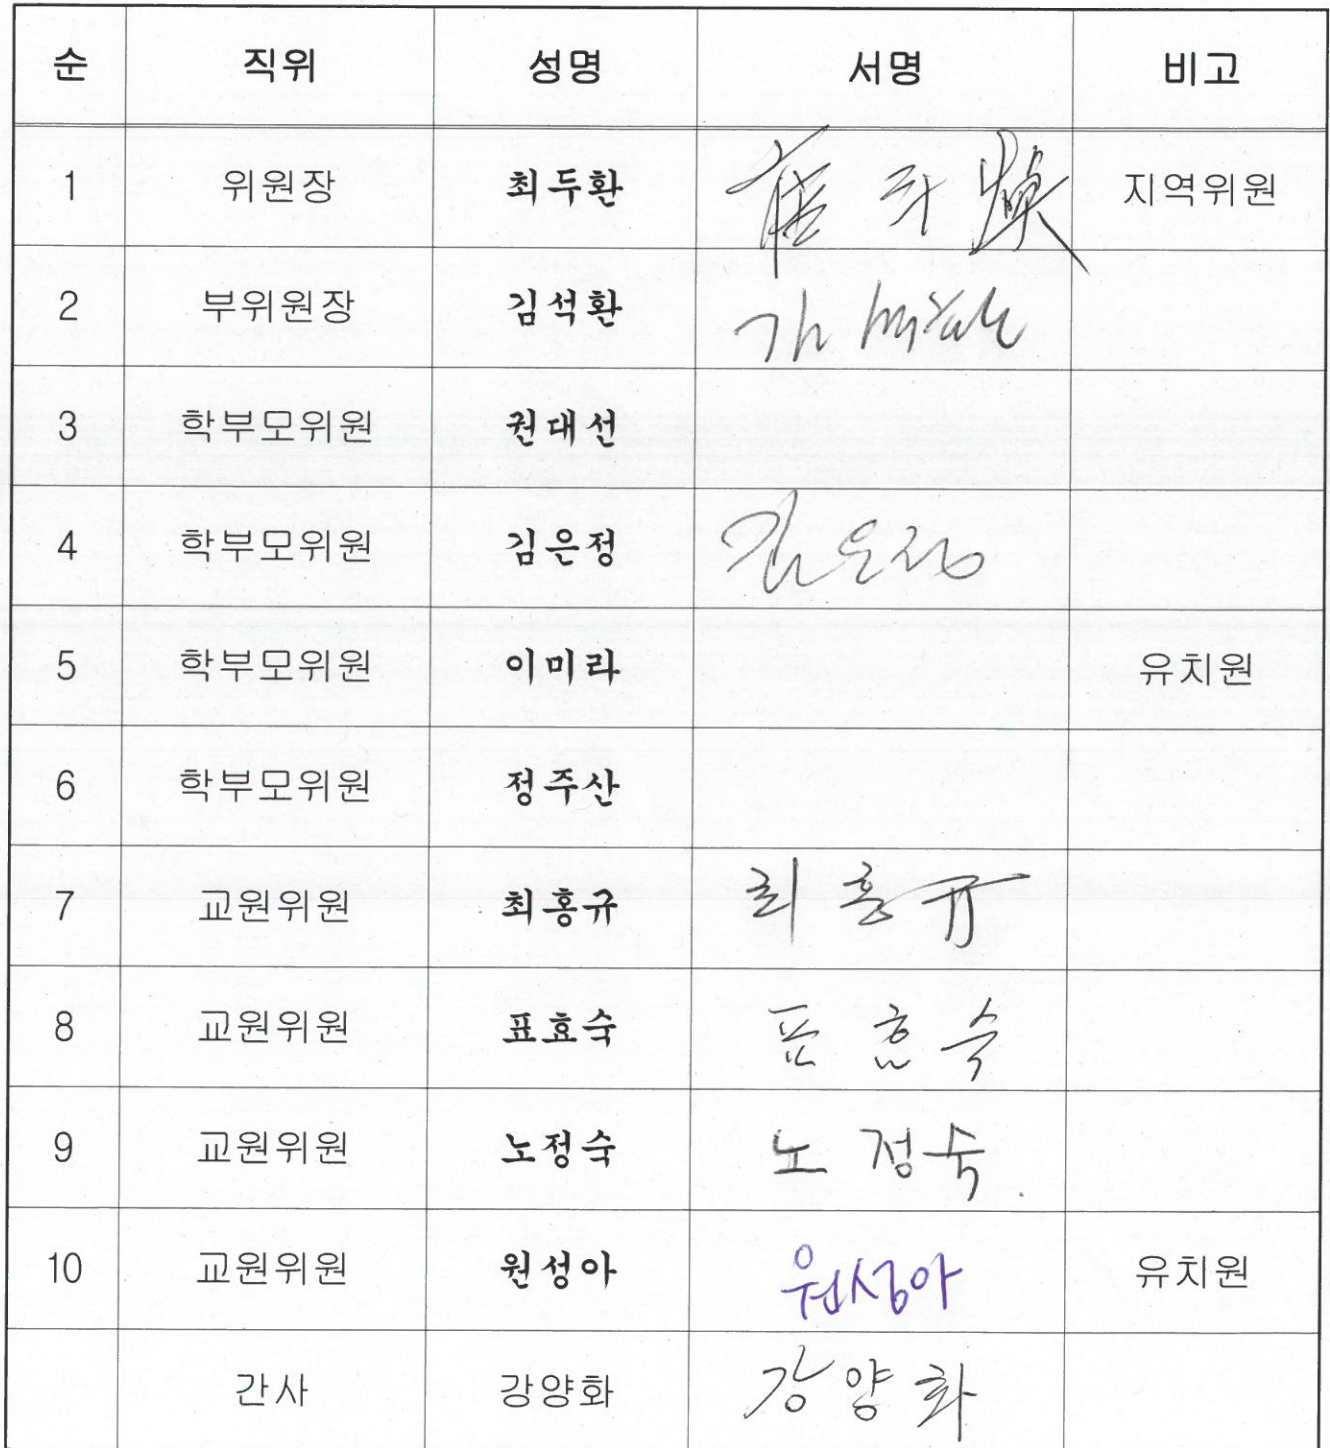 순 직위 성명 서명 비고
1 위원장 최두환 崔斗煥 지역위원
2 부위원장 김석환
3 학부모위원 권대선
4 학부모위원 김은정 김은정
5 학부모위원 이미라 유치원
6 학부모위원 정주산
7 교원위원 최홍규 최홍규
8 교원위원 표효숙 표효숙
9 교원위원 노정숙 노정숙
10 교원위원 원성아 원성아 유치원
간사 강양화 강양화